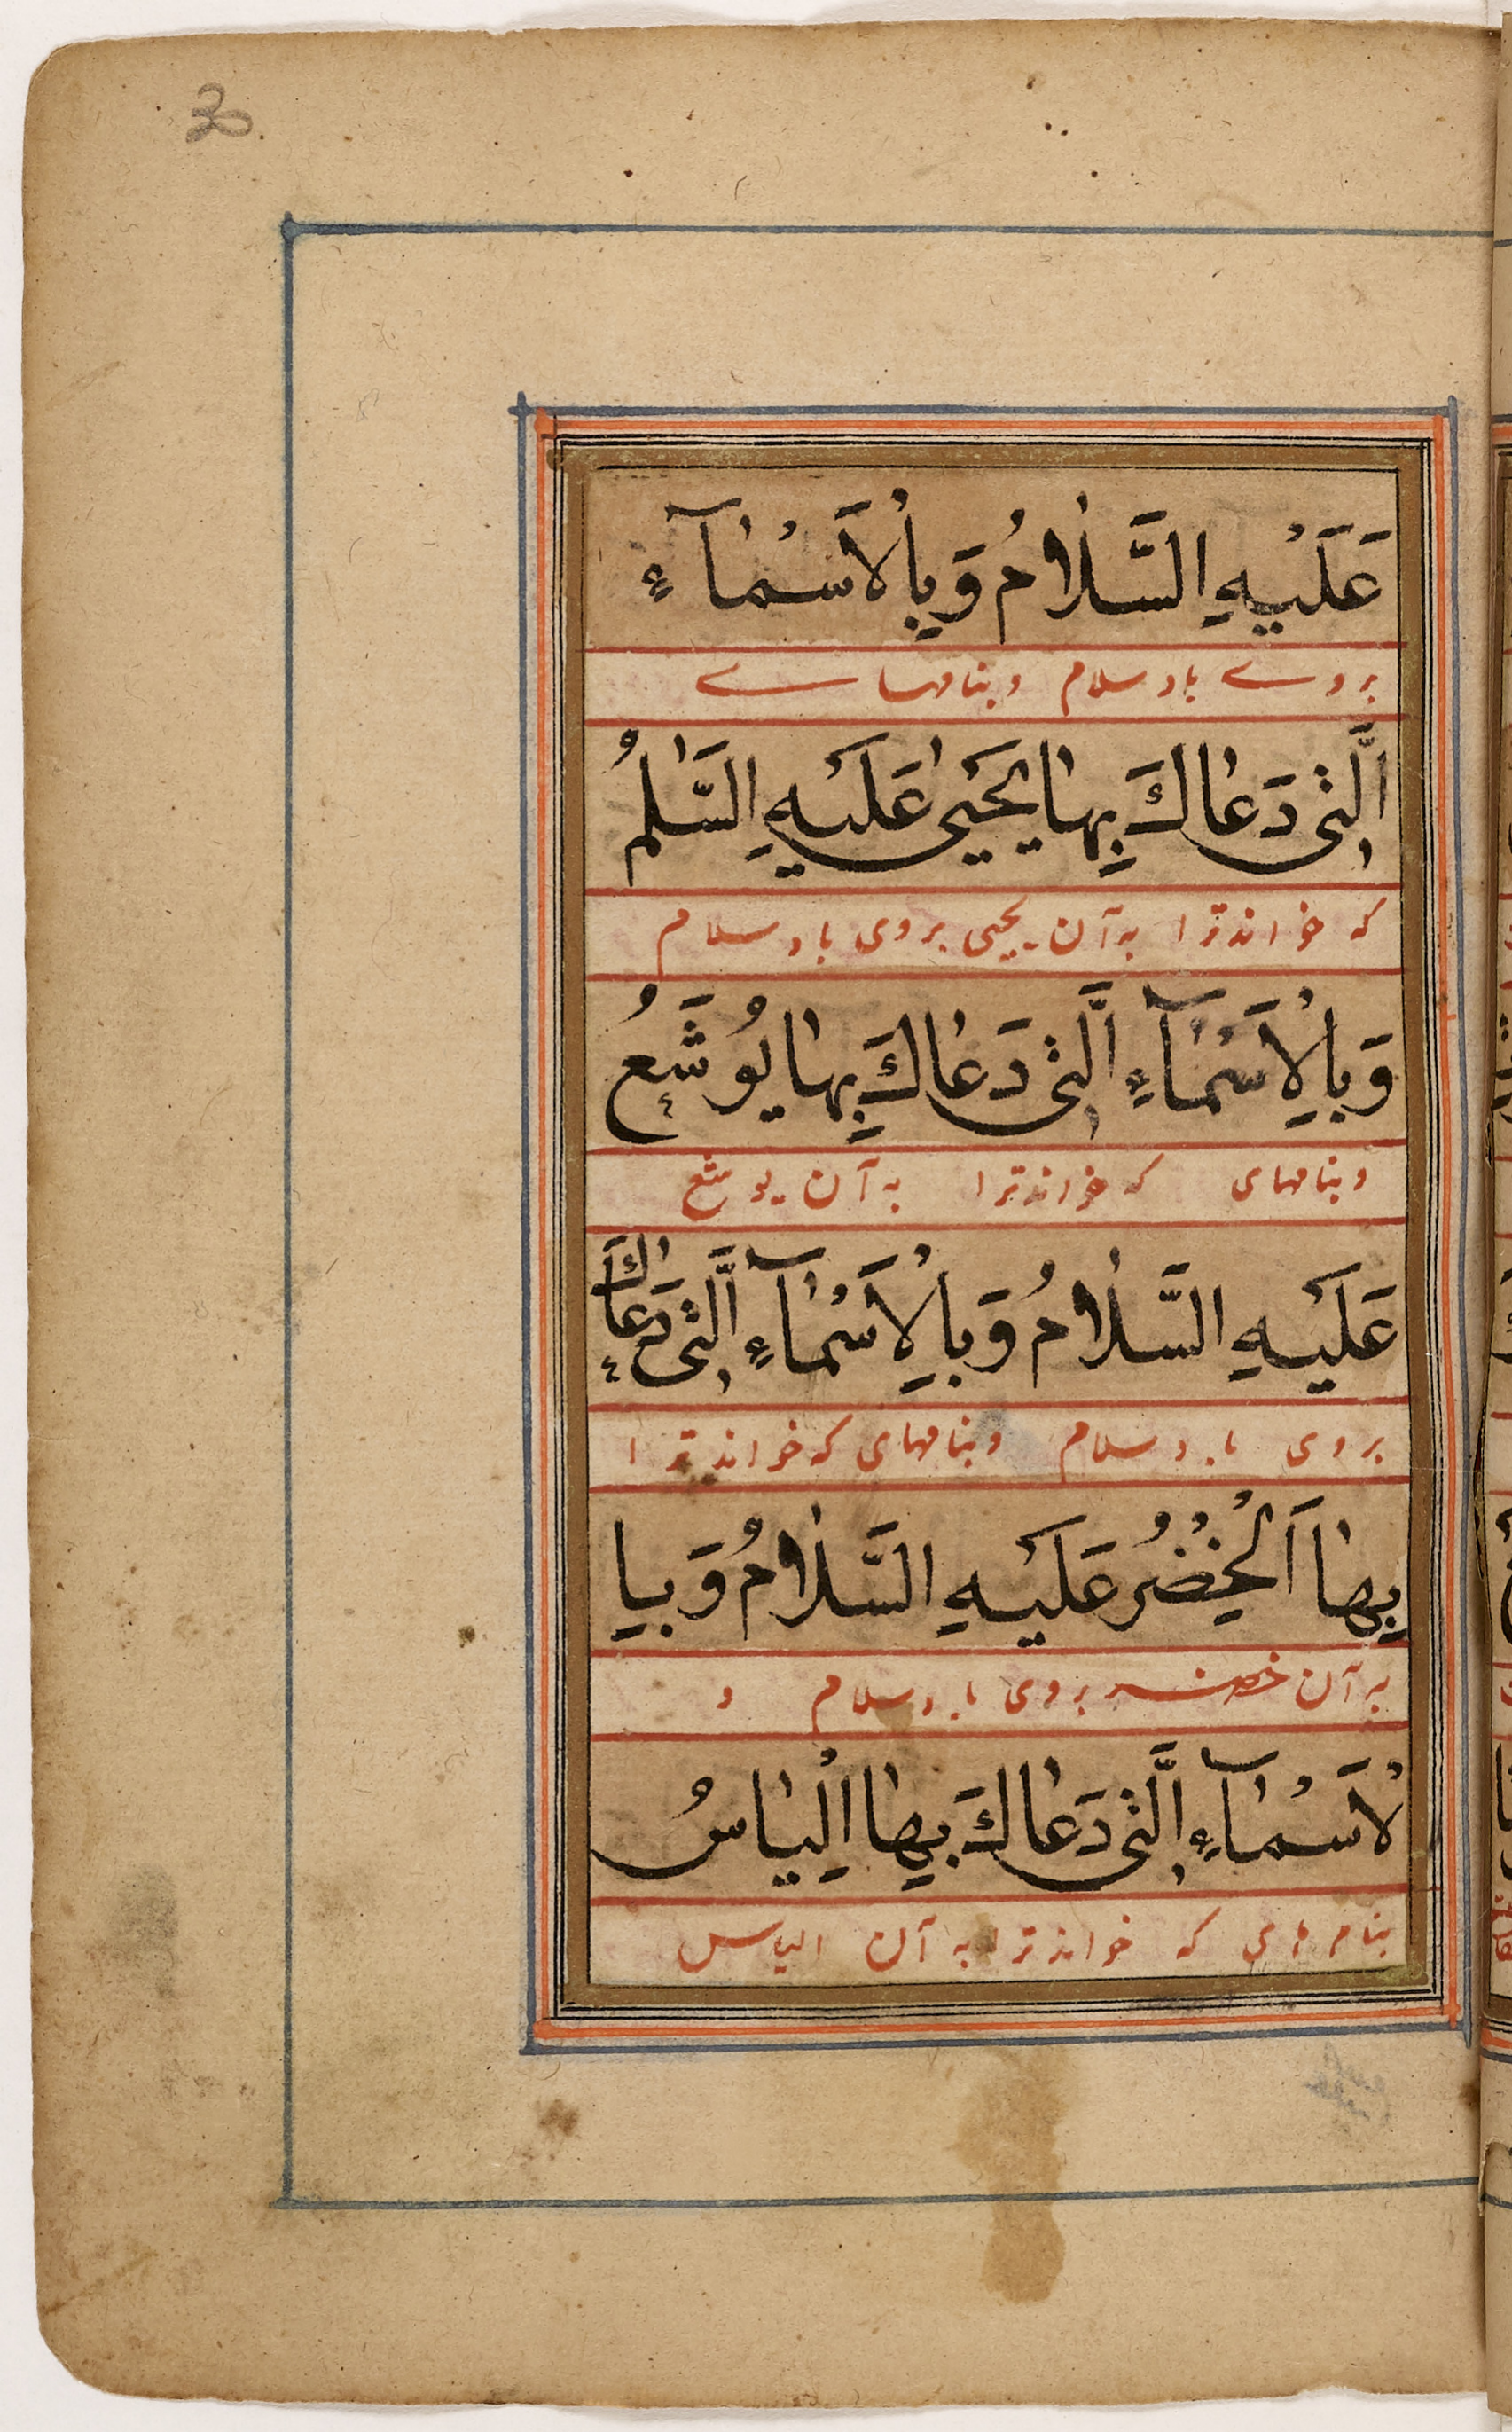 30
عَلَيْهِ السَّلَامُ وَبِالْاَسْمَآءِ
بروے باد سلام وبنامهاے
الَّتِى دَعَاكَ بِهَا يَحْيٰى عَلَيْهِ السَّلٰمُ
که خواند ترا به آن یحیی بروی باد سلام
وَبِالْاَسْمَآءِ الَّتِى دَعَاكَ بِهَا يُوشَعُ
وبنامهای که خواند ترا به آن یوشع
عَلَيْهِ السَّلَامُ وَبِالْاَسْمَآءِ الَّتِى دَعَاكَ
بروی باد سلام وبنامهای که خواند ترا
بِهَا اَلْخِضْرُ عَلَيْهِ السَّلَامُ وَبِا
به آن خضر بروی باد سلام و
لْاَسْمَآءِ الَّتِى دَعَاكَ بِهَا اِلْيَاسُ
بنام های که خواند ترا به آن الیاس